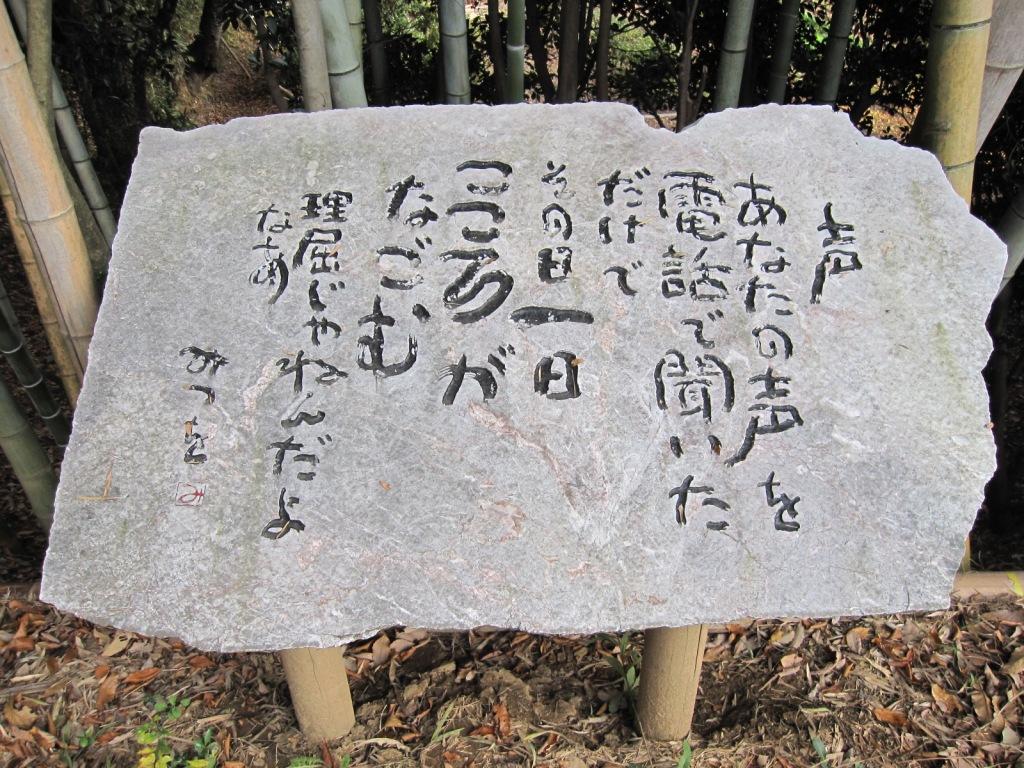 声
あなたの声を
電話で聞いた
だけで
その日一日
こころが
なごむ
理屈じゃねんだよ
なあ
みつを
み